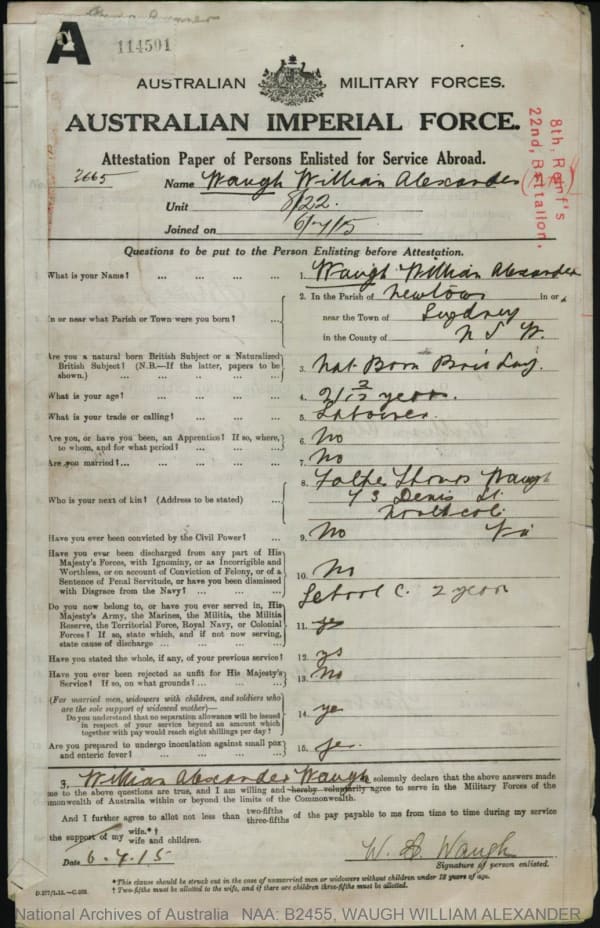 A
114501
AUSTRALIAN MILITARY FORCES.
AUSTRALIAN IMPERIAL FORCE.
8th. Reinf's
22nd, Battalion,
Attestation Paper of Persons Enlisted for Service Abroad.
3665
Name Waugh William Alexander
Unit 8/22.
Joined on 6/7/15
Questions to be put to the Person Enlisting before Attestation.
What is your Name? ... ... ... ... 1. Waugh William Alexander
In or near what Parish or Town were you born? ... 2. In the Parish of Newtown in or
near the Town of Sydney
in the County of N S W.
Are you a natural born British Subject or a Naturalized
British Subject? (N.B.—If the latter, papers to be
shown.) ... ... ... ... ... 3. Nat Born Brit
What is your age? ... ... ... ... 4. 21 2/12 years.
What is your trade or calling? ... ... ... 5. Labourer.
Are you, or have you been, an Apprentice? If so, where,
to whom, and for what period? ... ... ... 6. No
Are you married? ... ... ... ... ... 7. No
Who is your next of kin? (Address to be stated) ... 8. Father Thomas Waugh
73 Denis St
Northcote
Vic
Have you ever been convicted by the Civil Power? ... 9. No
Have you ever been discharged from any part of His
Majesty's Forces, with Ignominy, or as Incorrigible and
Worthless, or on account of Conviction of Felony, or of a
Sentence of Penal Servitude, or have you been dismissed
with Disgrace from the Navy? ... ... ... 10. No
School C. 2 years
Do you now belong to, or have you ever served in, His
Majesty's Army, the Marines, the Militia, the Militia
Reserve, the Territorial Force, Royal Navy, or Colonial
Forces? If so, state which, and if not now serving,
state cause of discharge ... ... ... ... 11. yes
Have you stated the whole, if any, of your previous service? 12. yes
Have you ever been rejected as unfit for His Majesty's
Service? If so, on what grounds? ... ... ... 13. No
(For married men, widowers with children, and soldiers who
are the sole support of widowed mother)—
Do you understand that no separation allowance will be issued
in respect of your service beyond an amount which
together with pay would reach eight shillings per day? 14. yes
Are you prepared to undergo inoculation against small pox
and enteric fever? ... ... ... ... 15. yes.
I, William Alexander Waugh solemnly declare that the above answers made
me to the above questions are true, and I am willing and hereby voluntarily agree to serve in the Military Forces of the
mmonwealth of Australia within or beyond the limits of the Commonwealth.
And I further agree to allot not less than two-fifths three-fifths of the pay payable to me from time to time during my service
the support of my wife.*† wife and children.
Date 6.7.15
W. A. Waugh
Signature of person enlisted.
*This clause should be struck out in the case of nonmarried men or widowers without children under 18 years of age.
† Two-fifths must be allotted to the wife, and if there are children three-fifths must be allotted.
National Archives of Australia NAA: B2455, WAUGH WILLIAM ALEXANDER